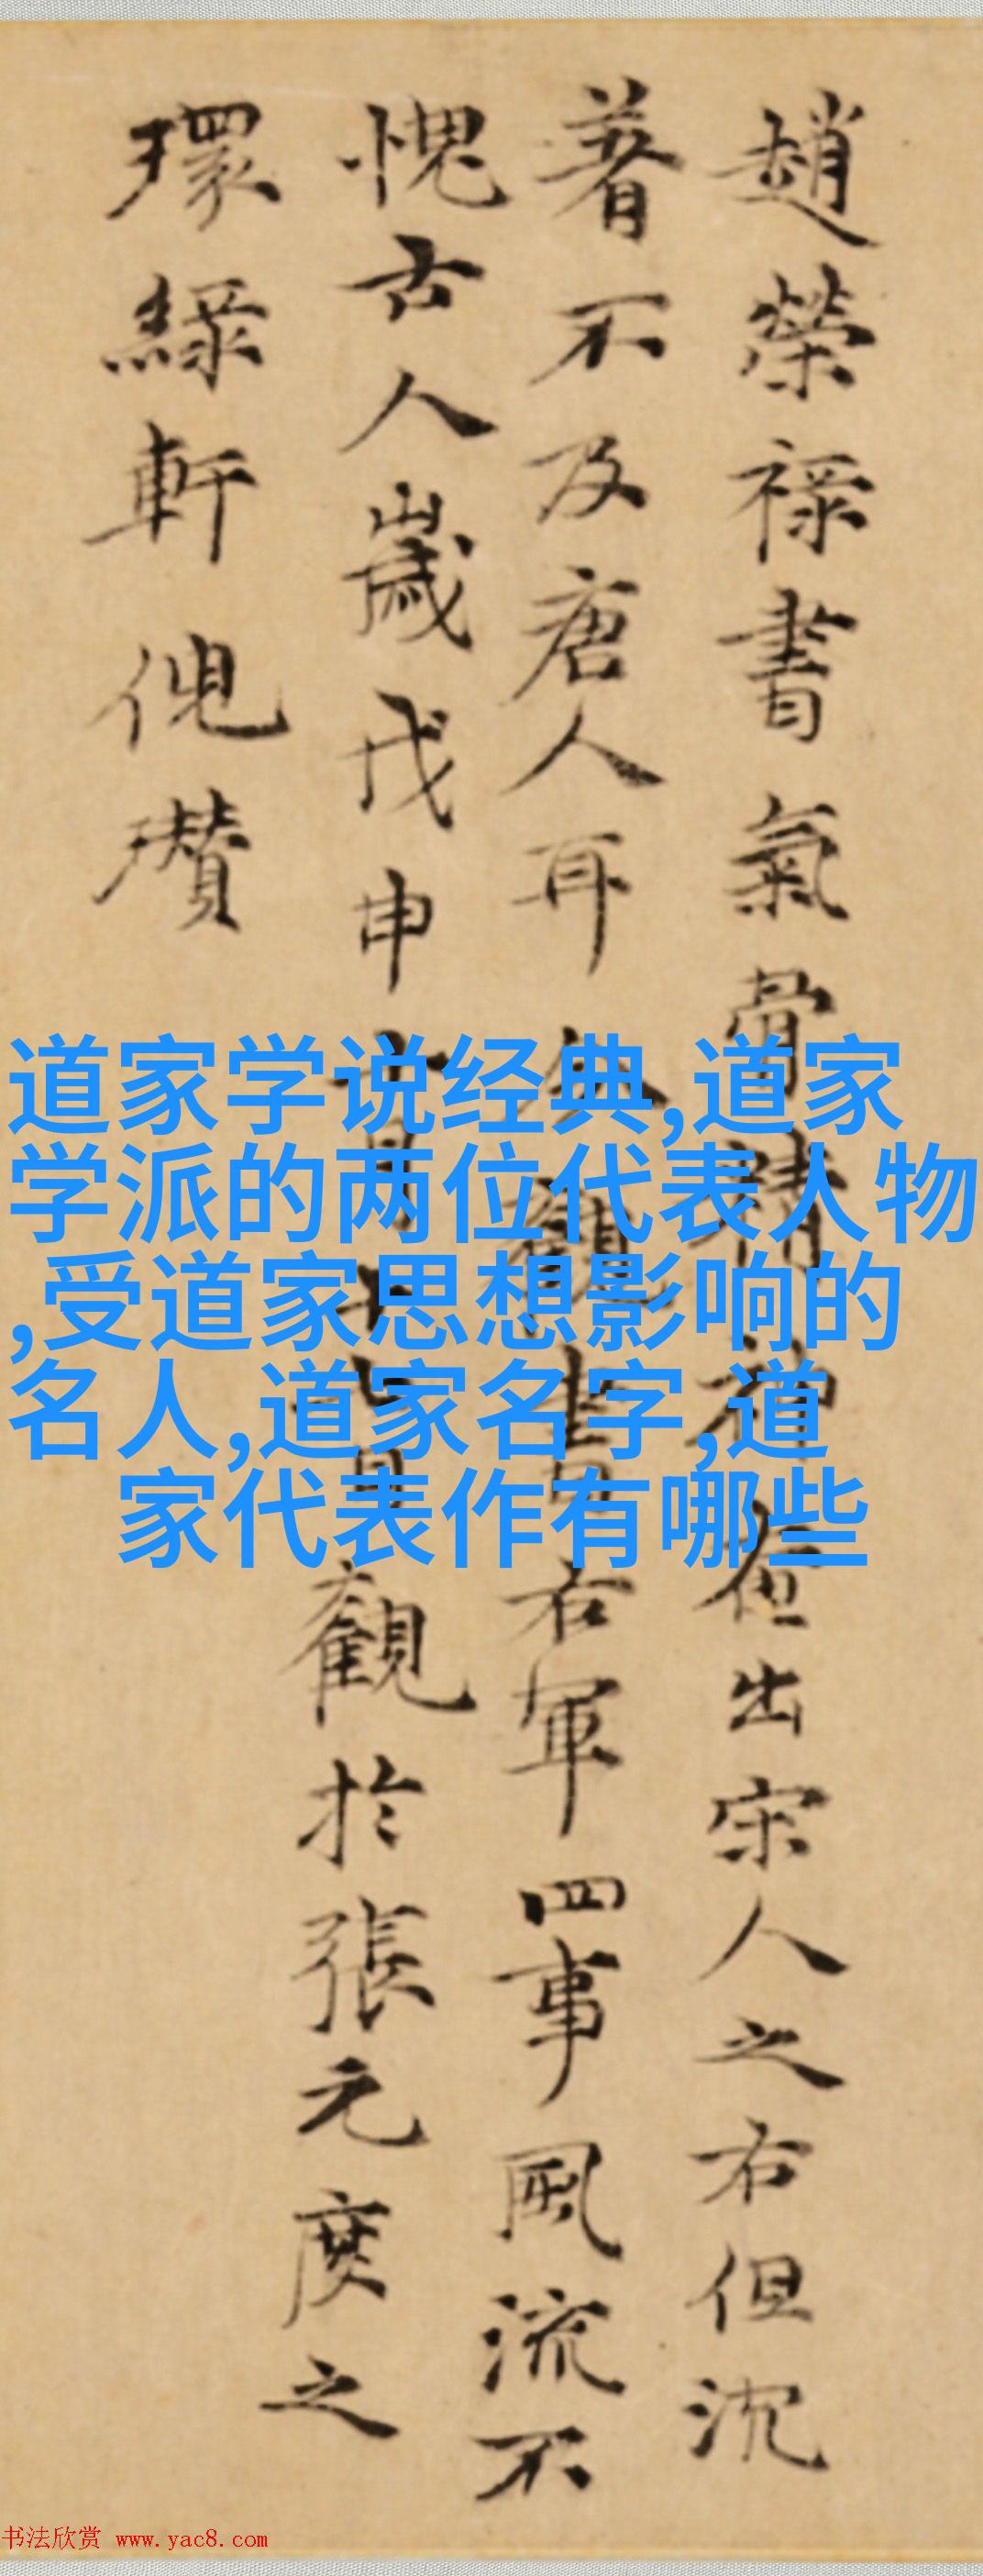 趙榮祿書氣骨精神出宋人之右但沈
著不及唐人耳今觀書右軍四事風流不
愧古人歲戊申月日觀於張元度之
環綠軒倪瓚
道家学说经典,道家
学派的两位代表人物
,受道家思想影响的
名人,道家名字,道
家代表作有哪些
书法欣赏 www.yac8.com